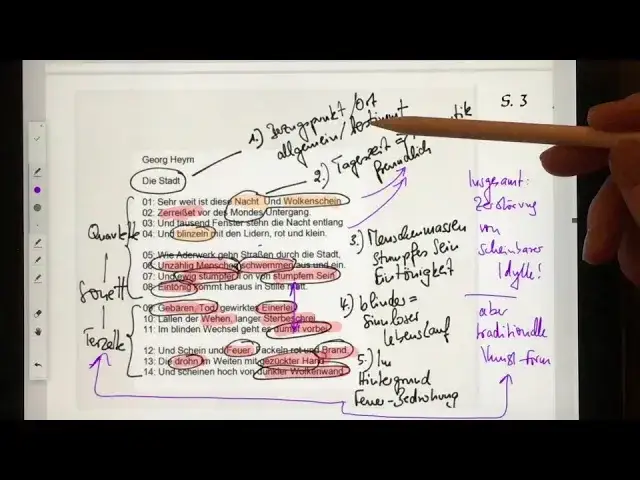 S. 3
1.) Bezugspunkt / Ort
allgemein / bestimmt
2.) Tageszeit =
freundlich
Georg Heym
Die Stadt
01: Sehr weit ist diese Nacht. Und Wolkenschein
02: Zerreißet vor des Mondes Untergang.
03: Und tausend Fenster stehn die Nacht entlang
04: Und blinzeln mit den Lidern, rot und klein.
05: Wie Aderwerk gehn Straßen durch die Stadt,
06: Unzählig Menschen schwemmen aus und ein.
07: Und ewig stumpfer Ton von stumpfem Sein
08: Eintönig kommt heraus in Stille matt.
09: Gebären, Tod, gewirktes Einerlei,
10: Lallen der Wehen, langer Sterbeschrei,
11: Im blinden Wechsel geht es dumpf vorbei.
12: Und Schein und Feuer, Fackeln rot und Brand,
13: Die drohn im Weiten mit gezückter Hand
14: Und scheinen hoch von dunkler Wolkenwand.
Quartette
Sonett
Terzette
3.) Menschenmassen
stumpfes Sein
Eintönigkeit
4.) blindes =
Sinnloser
Lebenslauf
5.) Im
Hintergrund
Feuer-Bedrohung
Insgesamt:
Zerstörung
von
scheinbarer
Idylle!
aber
traditionelle
Kunst-form